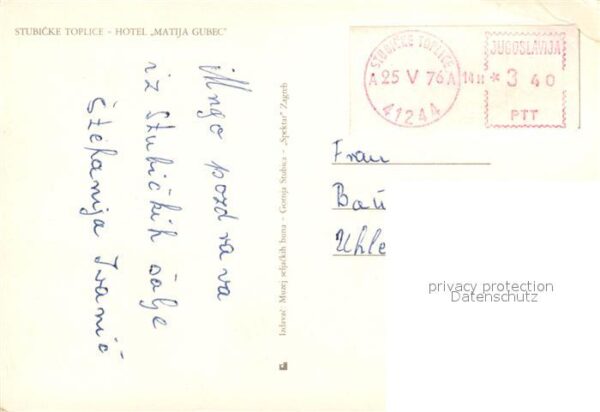 STUBIČKE TOPLICE - HOTEL „MATIJA GUBEC"
Mngo pozdrava
iz Stubičkih
šalje
Štefanija Ivanić
Izdavač Muzej seljačkih buna - Gornja Stubica - „Spektar" Zagreb
STUBIČKE TOPLICE
A 25 V 76 A 14H
41244
JUGOSLAVIJA
* 3 40
PTT
Frau
Bau
Uhle
privacy protection
Datenschutz